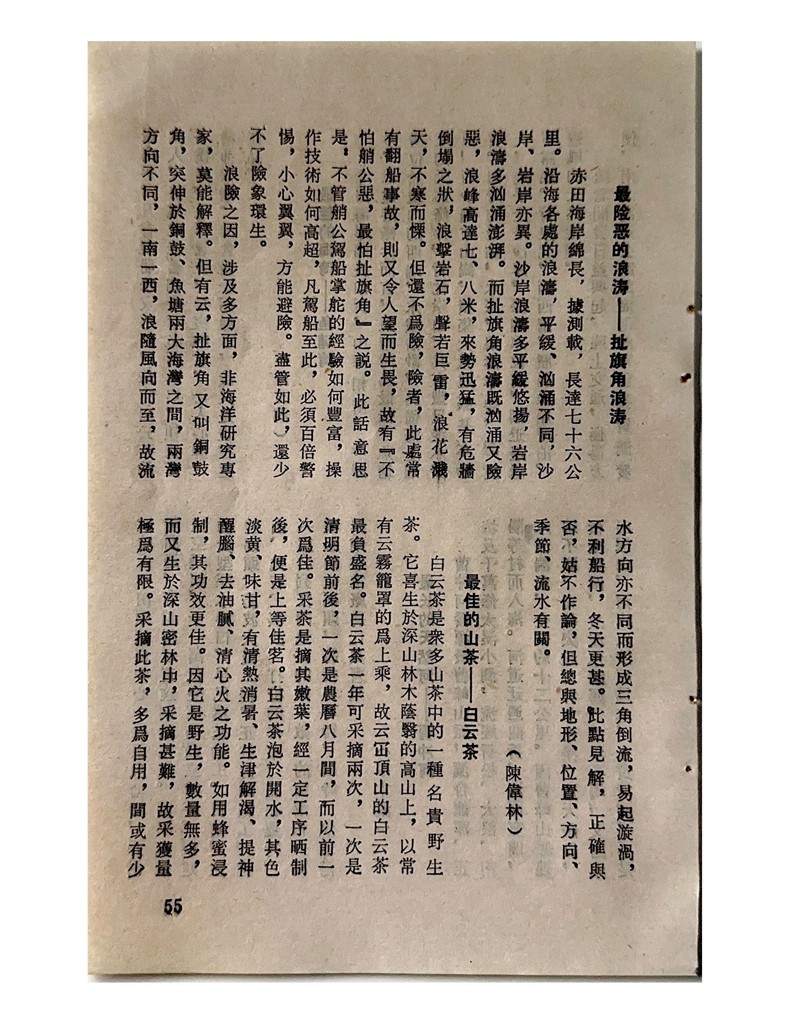 最险恶的浪涛——扯旗角浪涛
赤田海岸綿長，據測載，長達七十六公
里。沿海各處的浪濤，平緩、汹涌不同，沙
岸、岩岸亦異。沙岸浪濤多平緩悠揚，岩岸
浪濤多汹涌澎湃。而扯旗角浪濤既汹涌又險
惡，浪峰高達七、八米，來勢迅猛，有危牆
倒塌之狀，浪擊岩石，聲若巨雷，浪花濺
天，不寒而慄。但還不爲險，險者，此處常
有翻船事故，則又令人望而生畏，故有『不
怕艄公惡，最怕扯旗角』之説。此話意思
是：不管艄公駕船掌舵的經驗如何豐富，操
作技術如何高超，凡駕船至此，必須百倍警
惕，小心翼翼，方能避險。盡管如此，還少
不了險象環生。
浪險之因，涉及多方面，非海洋研究專
家，莫能解釋。但有云，扯旗角又叫銅鼓
角，突伸於銅鼓、魚塘兩大海灣之間，兩灣
方向不同，一南一西，浪隨風向而至，故流
水方向亦不同而形成三角倒流，易起漩渦，
不利船行，冬天更甚。此點見解，正確與
否，姑不作論，但總與地形、位置、方向、
季節、流水有關。
（陳偉林）
最佳的山茶——白云茶
白云茶是衆多山茶中的一種名貴野生
茶。它喜生於深山林木蔭翳的高山上，以常
有云霧籠罩的爲上乘，故云冚頂山的白云茶
最負盛名。白云茶一年可采摘兩次，一次是
清明節前後，一次是農曆八月間，而以前一
次爲佳。采茶是摘其嫩葉，經一定工序晒制
後，便是上等佳茗。白云茶泡於開水，其色
淡黄、味甘，有清熱消暑、生津解渴、提神
醒腦、去油膩、清心火之功能。如用蜂蜜浸
制，其功效更佳。因它是野生，數量無多，
而又生於深山密林中，采摘甚難，故采獲量
極爲有限。采摘此茶，多爲自用，間或有少
55